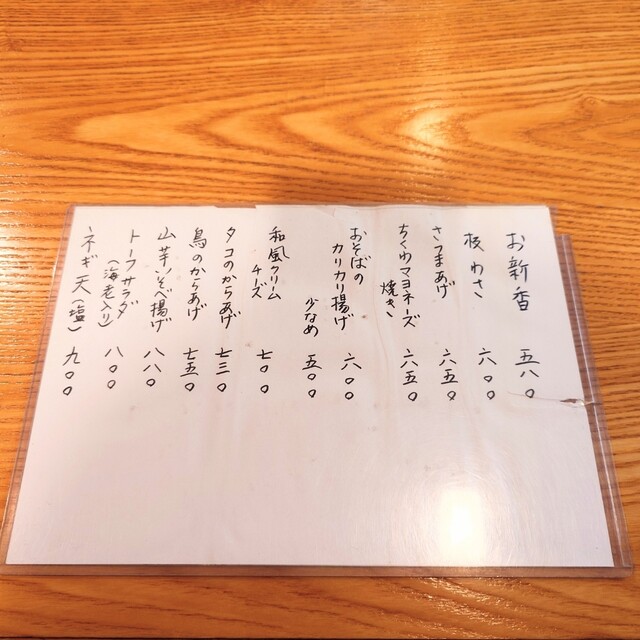 お新香 五八〇
板わさ 六〇〇
さつまあげ 六五〇
ちくわマヨネーズ
焼き 六五〇
おそばの
カリカリ揚げ 六〇〇
少なめ 五〇〇
和風クリーム
チーズ 七〇〇
タコのからあげ 七三〇
鳥のからあげ 七五〇
山芋いそべ揚げ 八八〇
トーフサラダ
(海老入り) 八〇〇
ネギ天(塩) 九〇〇